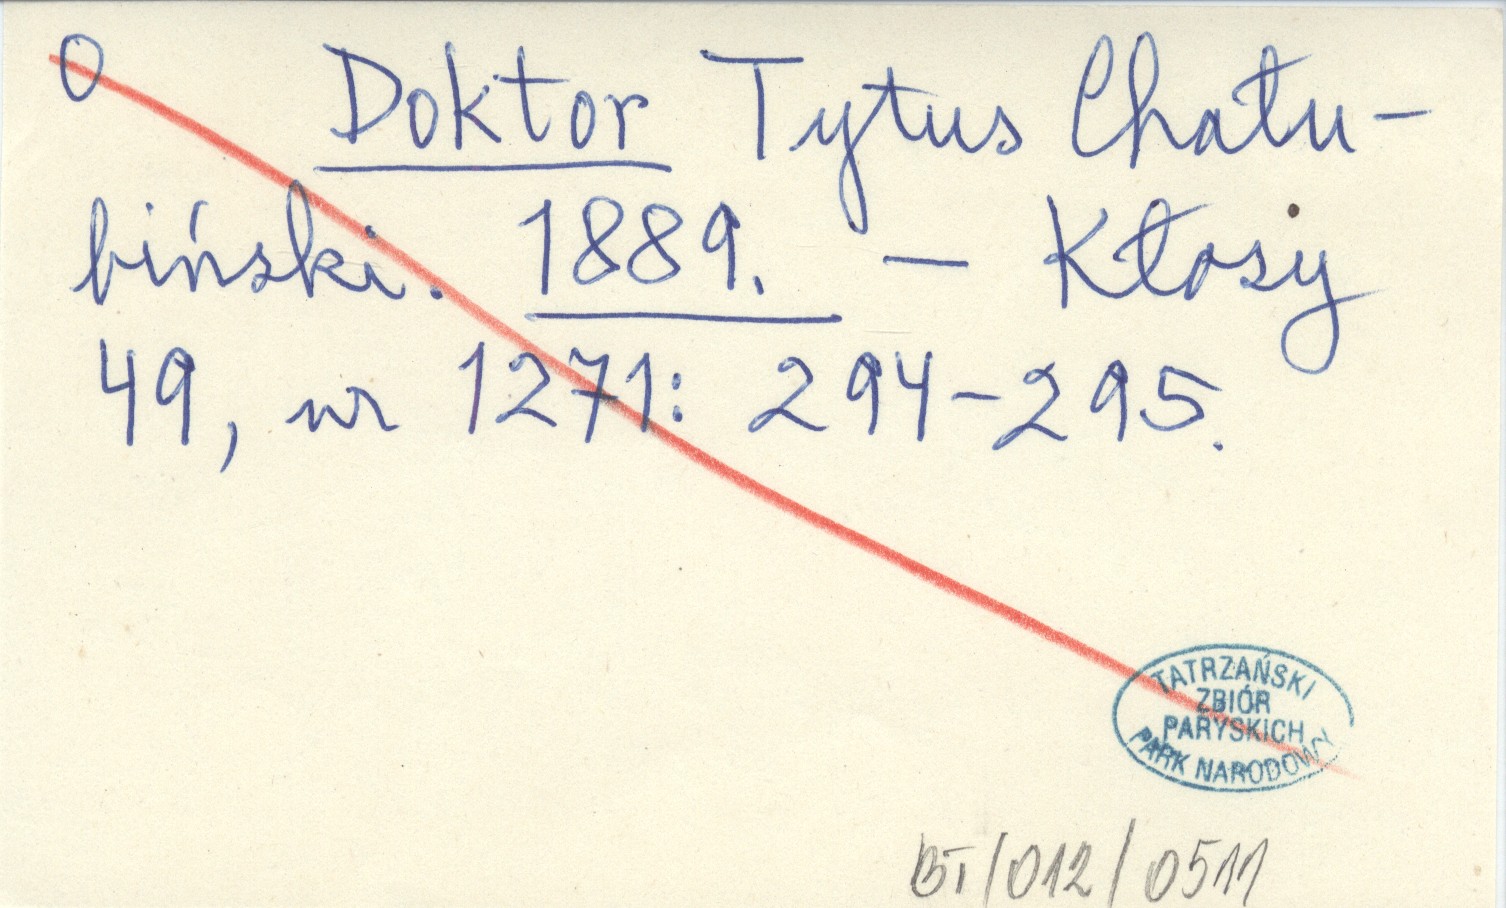 O Doktor Tytus Chału-
biński. 1889. — Kłosy
49, nr 1271: 294-295.
TATRZAŃSKI
ZBIÓR
PARYSKICH
PARK NARODOWY
BT/012/0511